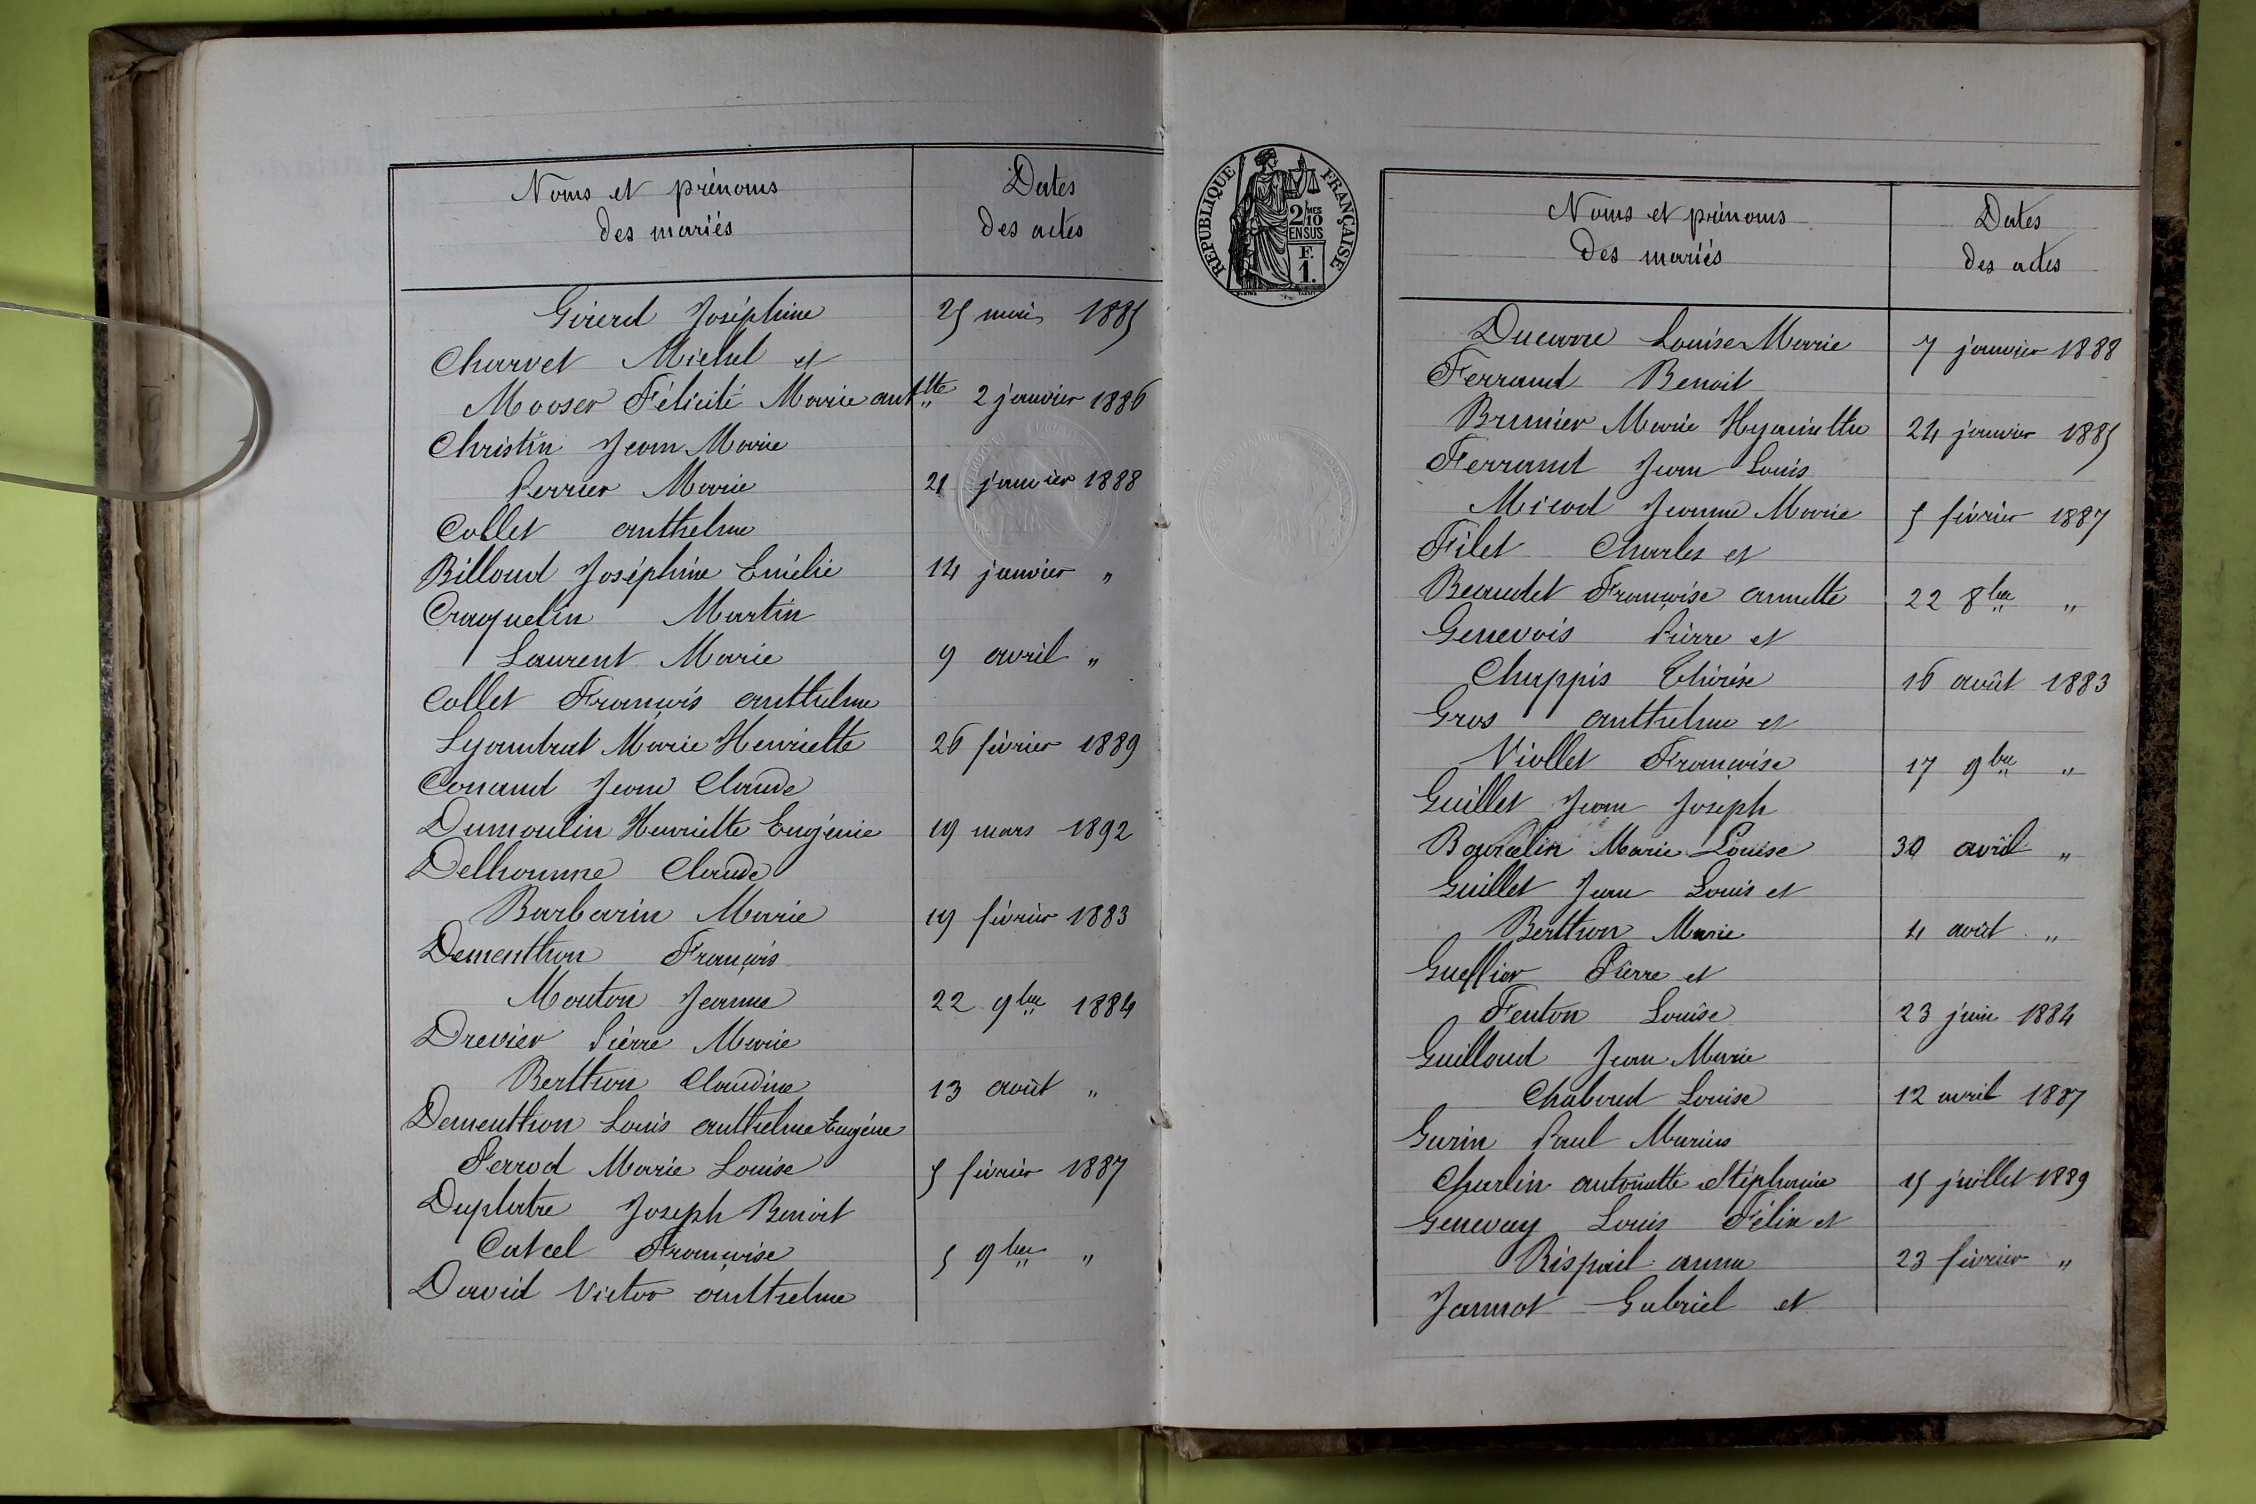 Noms et prénoms
des mariés
Dates
des actes
Girerd Joséphine 25 mai 1885
Charvet Michel et
Mooser Félicité Marie antte 2 janvier 1886
Christin Jean Marie
Perrier Marie 21 janvier 1888
Collet anthelme
Billoud Joséphine Emélie 14 janvier "
Craquelin Martin
Laurent Marie 9 avril "
Collet François anthelme
Lyaudrat Marie Henriette 26 février 1889
Conand Jean Claude
Dumoulin Henriette Eugénie 19 mars 1892
Delhomme Claude
Barbarin Marie 19 février 1883
Dementhon François
Mouton Jeanne 22 9bre 1884
Drevier Pierre Marie
Berthon Claudine 13 août "
Dementhon Louis anthelme Eugéne
Perrod Marie Louise 5 février 1887
Duplatre Joseph Benoit
Catcel Françoise 5 9bre "
David Victor anthelme
REPUBLIQUE FRANÇAISE
2/10MES
EN SUS
F.
1.
Noms et prénoms
des mariés
Dates
des actes
Ducarre Louise Marie 7 janvier 1888
Ferrand Benoit
Brunier Marie Hyacinthe 24 janvier 1885
Ferrand Jean Louis
Micod Jeanne Marie 5 février 1887
Filet Charles et
Beaudet Françoise annette 22 8bre "
Genevois Pierre et
Chappis Thérèse 16 août 1883
Gros anthelme et
Viollet Françoise 17 9bre "
Guillet Jean Joseph
Bourcelin Marie Louise 30 avril "
Guillet Jean Louis et
Berthon Marie 4 août "
Gueffier Pierre et
Fenton Louise 23 juin 1884
Guilloud Jean Marie
Chaboud Louise 12 avril 1887
Gurin Paul Marius
Charlin antoinette Stéphanie 15 juillet 1889
Genevay Louis Félix et
Rispail anna 23 février "
Jannot Gabriel et